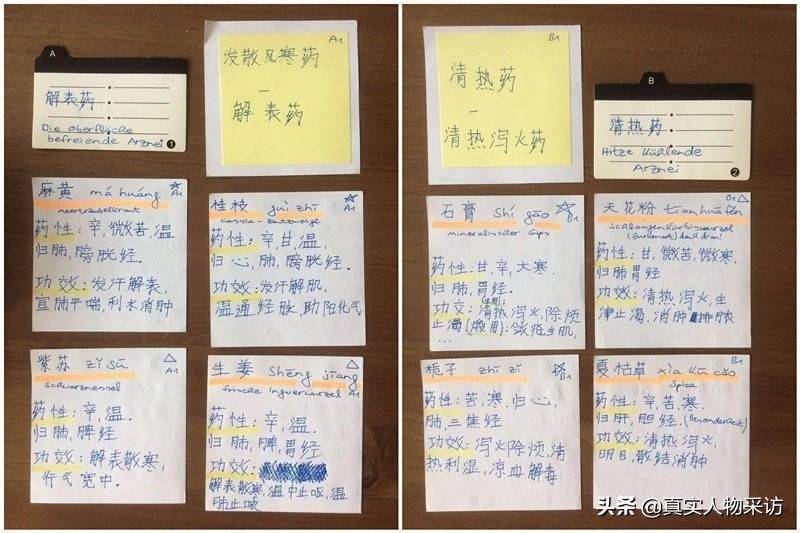 A
解表药
Die oberfläche
befreiende Arznei
1
A1
发散风寒药
—
解表药
麻黄 má huáng
A1
meerträubelkraut
药性：辛,微苦,温
归肺,膀胱经.
功效：发汗解表,
宣肺平喘,利水消肿
桂枝 guì zhī
A1
cassia-zimtzweige
药性：辛,甘,温
归心,肺,膀胱经.
功效：发汗解肌,
温通经脉,助阳化气
紫苏 zǐ sū
A1
schwarznessel
药性：辛,温.
归肺,脾经
功效：解表散寒,
行气宽中.
生姜 shēng jiāng
A1
frische ingwerwurzel
药性：辛,温.
归肺,脾,胃经
功效：
解表散寒,温中止呕,温
肺止咳
B1
清热药
—
清热泻火药
B
清热药
Hitze kühlende
Arznei
2
石膏 shí gāo
B1
mineralischer Gips
药性：甘,辛,大寒.
归肺,胃经.
功效：(生用)：清热泻火,除烦
止渴(煅用)：敛疮生肌,
...
天花粉 tiānhuāfěn
B1
schlangenkürbiswurzel
药性：甘,微苦,微寒.
归肺胃经
功效：清热,泻火,生
津止渴,消肿排脓
栀子 zhī zǐ
B1
药性：苦,寒,归心,
肺,三焦经
功效：泻火除烦,清
热利湿,凉血解毒
夏枯草 xià kū cǎo
B1
Spica
药性：辛,苦.寒.
归肝,胆经.(Besonderheit)
功效：清热泻火,
明目,散结消肿
头条 @真实人物采访